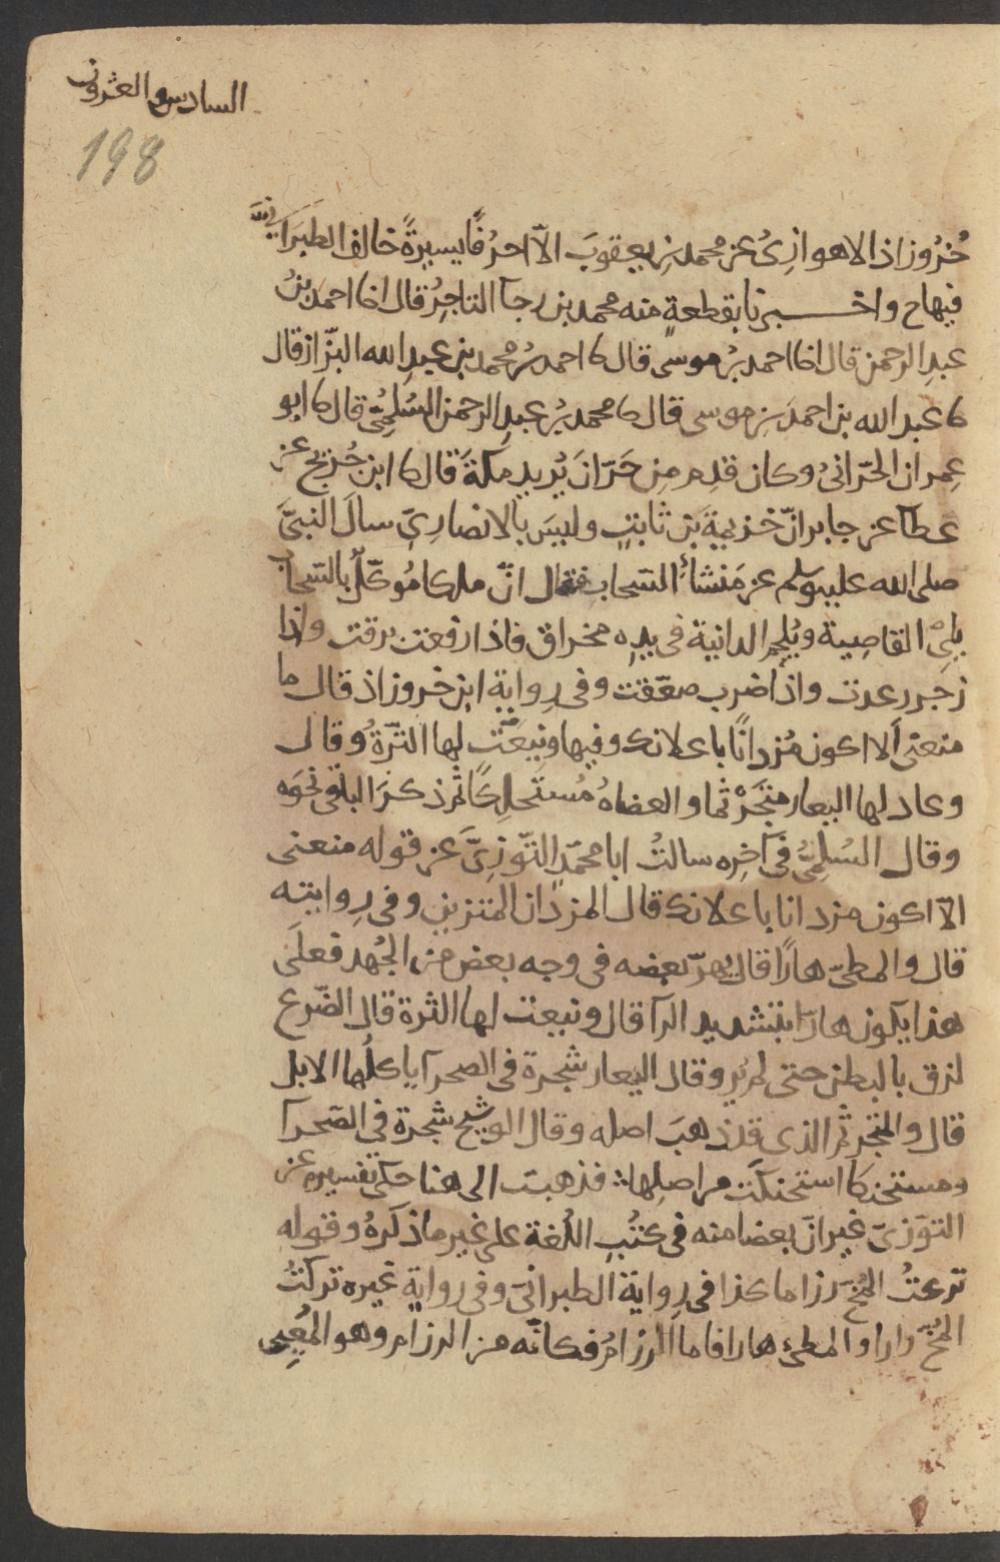 السادس والعشرون
198
خُرُوزاذ الاهوازِىُ عن محمد بنِ يعقوبَ الّا احرُفًا يسيرةً خالف الطبرانيَّ
فيها ح واخـــبرنا بقطعةٍ منه محمد بن رجآ التاجِرُ قال انا احمدَ بنُ
عبدِ الرحمن قال انا احمد بنُ موسى قال كا احمد بنُ محمد بن عبدِ الله البزّاز قال
كا عبد الله بن احمدَ بنِ موسى قال كا محمد بنُ عبدِ الرحمن السُلَمِىُّ قال كا ابو
عِمران الحَرّانىُ وكان قدِم مِن حَرّانَ يُريد مكةَ قال كا ابن جُريج عن
عطآ عن جابر انّ خزيمةَ بن ثابتٍ وليسَ بالانصارِىّ سالَ النبىَّ
صلى الله عليه وسلم عن مَنشأ السَحابِ فقال انّ ملكا مُوكّلٌ بالسَحاب
يلِىْ القاصِية ويُلحِم الدانية فى يدِه مخراق فاذا رفعت برقت واذا
زجر رعدت واذا ضرب صعّقت وفى رِوايةِ ابن خروزاذ قال ما
منعنى ألا اكون مُزدانًا باعلانك وفيها ونبعَت لها الثرّةُ وقال
وعاد لها البعار متجَرْثما والعضاهُ مُستحلِكًا ثم ذكرَ الباقى نحوَه
وقال السُلمِىُّ فى آخِره سالتُ ابا محمّدٍ التّوزِىَّ عن قوله منعنى
الّا اكون مزدانا باعلانك قال المزدان المتزين وفى رِوايته
قال والمطىّ هارًا قال يهرّ بعضه فى وجه بعض من الجُهد فعلَى
هذا يكون هارّا بتشديد الرآ قال ونبعت لها الثرة قال الضّرع
لزق بالبطن حتى لم يُر وقال اليعار شجرة فى الصحرآ ياكلُها الابل
قال والمتجرثم الذى قد ذهبَ اصله وقال الوشيج شجرة فى الصّحرآ
ومستحنكا استحنكَت من اصلِها فذهبَت الى هنا حكى تفسيره عن
التوّزىّ غير انّ بعضا منه فى كتُبِ اللُغة على غير ما ذكرهُ وقوله
ترعتُ المُخّ رزاما كذا فى رِواية الطبرانىّ وفى رواية غيره تركتُ
المُخّ رارا والمطىّ هارا فاما الرزامُ فكانّه من الرزام وهو المُعيِى